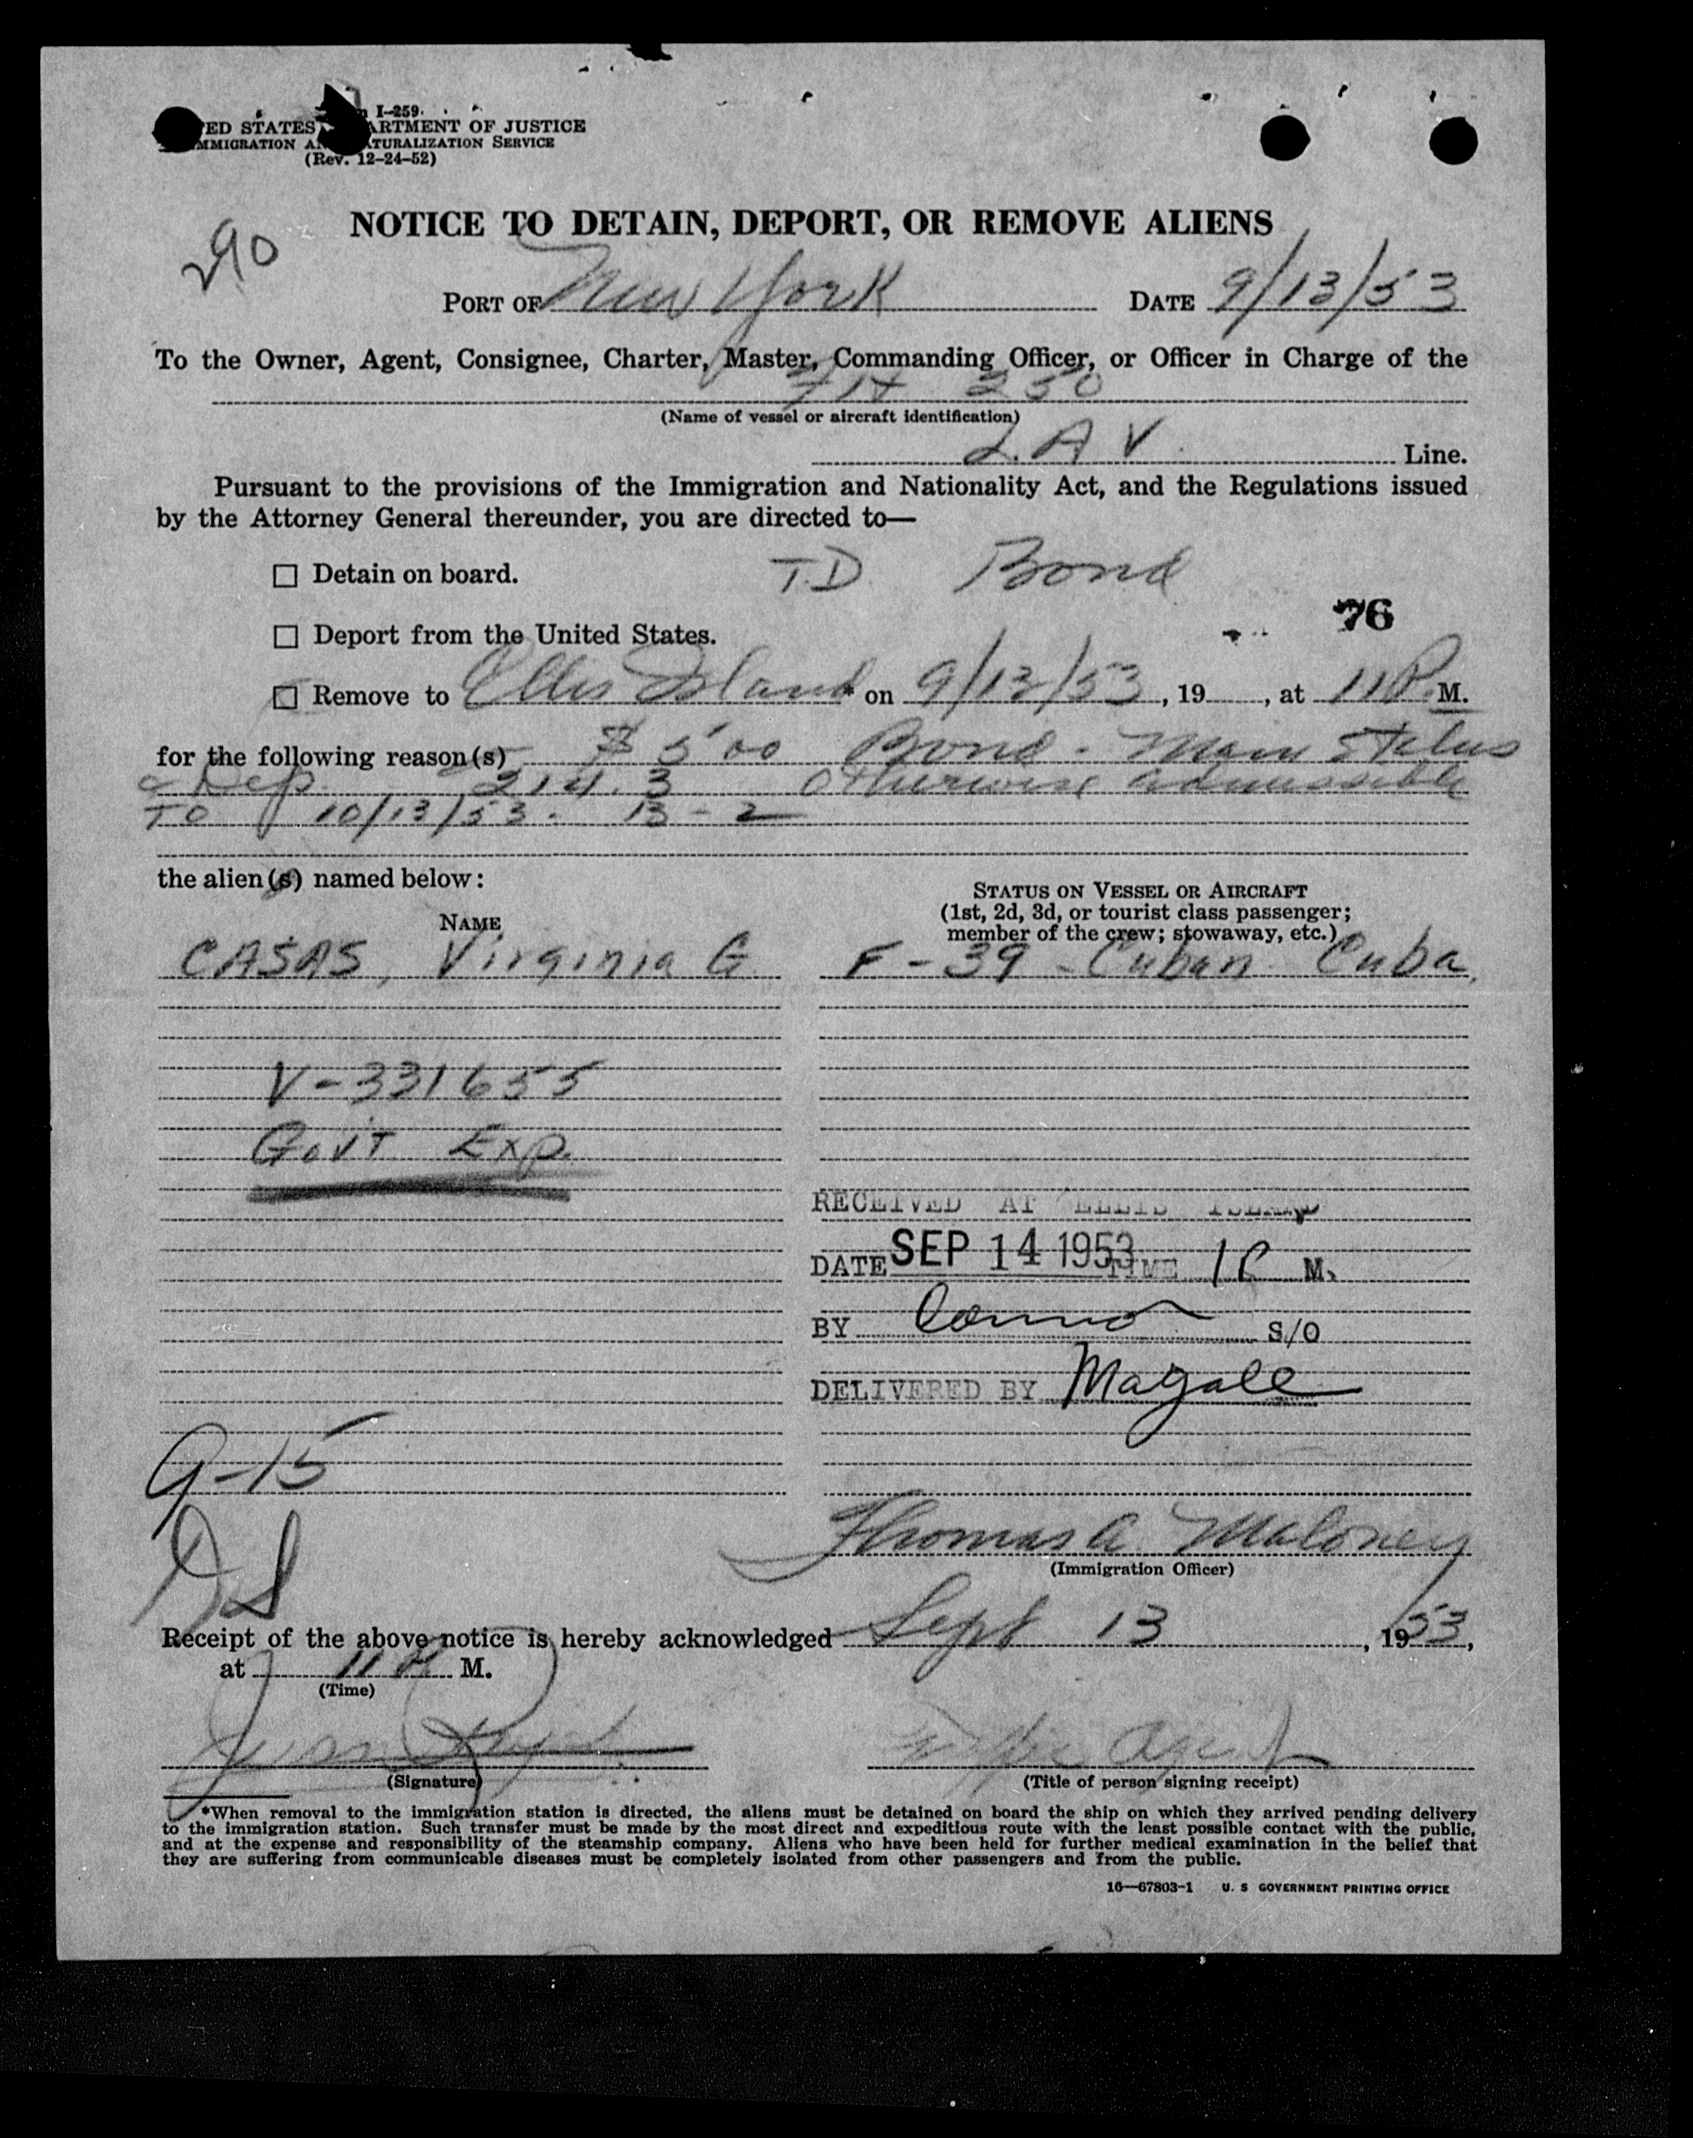 I-259
ED STATES ARTMENT OF JUSTICE
MMIGRATION AN TURALIZATION SERVICE
(Rev. 12-24-52)
290
NOTICE TO DETAIN, DEPORT, OR REMOVE ALIENS
PORT OF New York DATE 9/13/53
To the Owner, Agent, Consignee, Charter, Master, Commanding Officer, or Officer in Charge of the
Flt 250
(Name of vessel or aircraft identification)
L.A.V. Line.
Pursuant to the provisions of the Immigration and Nationality Act, and the Regulations issued
by the Attorney General thereunder, you are directed to—
☐ Detain on board. T.D. Bond
76
☐ Deport from the United States.
☐ Remove to Ellis Island* on 9/13/53, 19, at 11 P. M.
for the following reason(s) $500 Bond - Main Status
& Dep. 214.3 Otherwise admissible
TO 10/13/53. B-2
the alien(s) named below:
STATUS ON VESSEL OR AIRCRAFT
(1st, 2d, 3d, or tourist class passenger;
member of the crew; stowaway, etc.)
NAME
CASAS, Virginia G F-39 - Cuban Cuba
V-331655
Govt Exp.
RECEIVED AT ELLIS ISLAND
DATE SEP 14 1953 TIME 1 P M.
BY Connor S/O
DELIVERED BY Magale
G-15
DS
Thomas A. Maloney
(Immigration Officer)
Receipt of the above notice is hereby acknowledged Sept 13, 1953,
at 11 P M.
(Time)
Juan
Agent
(Signature)
(Title of person signing receipt)
*When removal to the immigration station is directed, the aliens must be detained on board the ship on which they arrived pending delivery
to the immigration station. Such transfer must be made by the most direct and expeditious route with the least possible contact with the public,
and at the expense and responsibility of the steamship company. Aliens who have been held for further medical examination in the belief that
they are suffering from communicable diseases must be completely isolated from other passengers and from the public.
16—67803-1 U. S GOVERNMENT PRINTING OFFICE